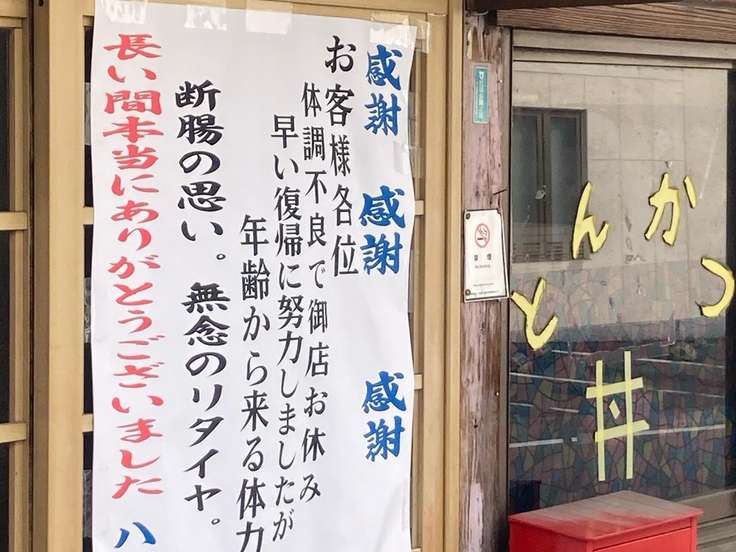 感謝 感謝 感謝
お客様各位
体調不良で御店お休み
早い復帰に努力しましたが
年齢から来る体力
断腸の思い。無念のリタイヤ。
長い間本当にありがとうございました ハ
とんかつ
丼
禁煙